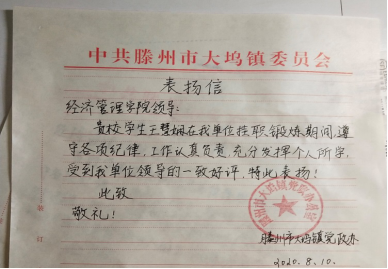 中共滕州市大坞镇委员会
表扬信
经济管理学院领导：
贵校学生王慧娴在我单位挂职锻炼期间，遵
守各项纪律，工作认真负责，充分发挥个人所学，
受到我单位领导的一致好评，特此表扬！
此致
敬礼！
滕州市大坞镇党政办
2020.8.10.